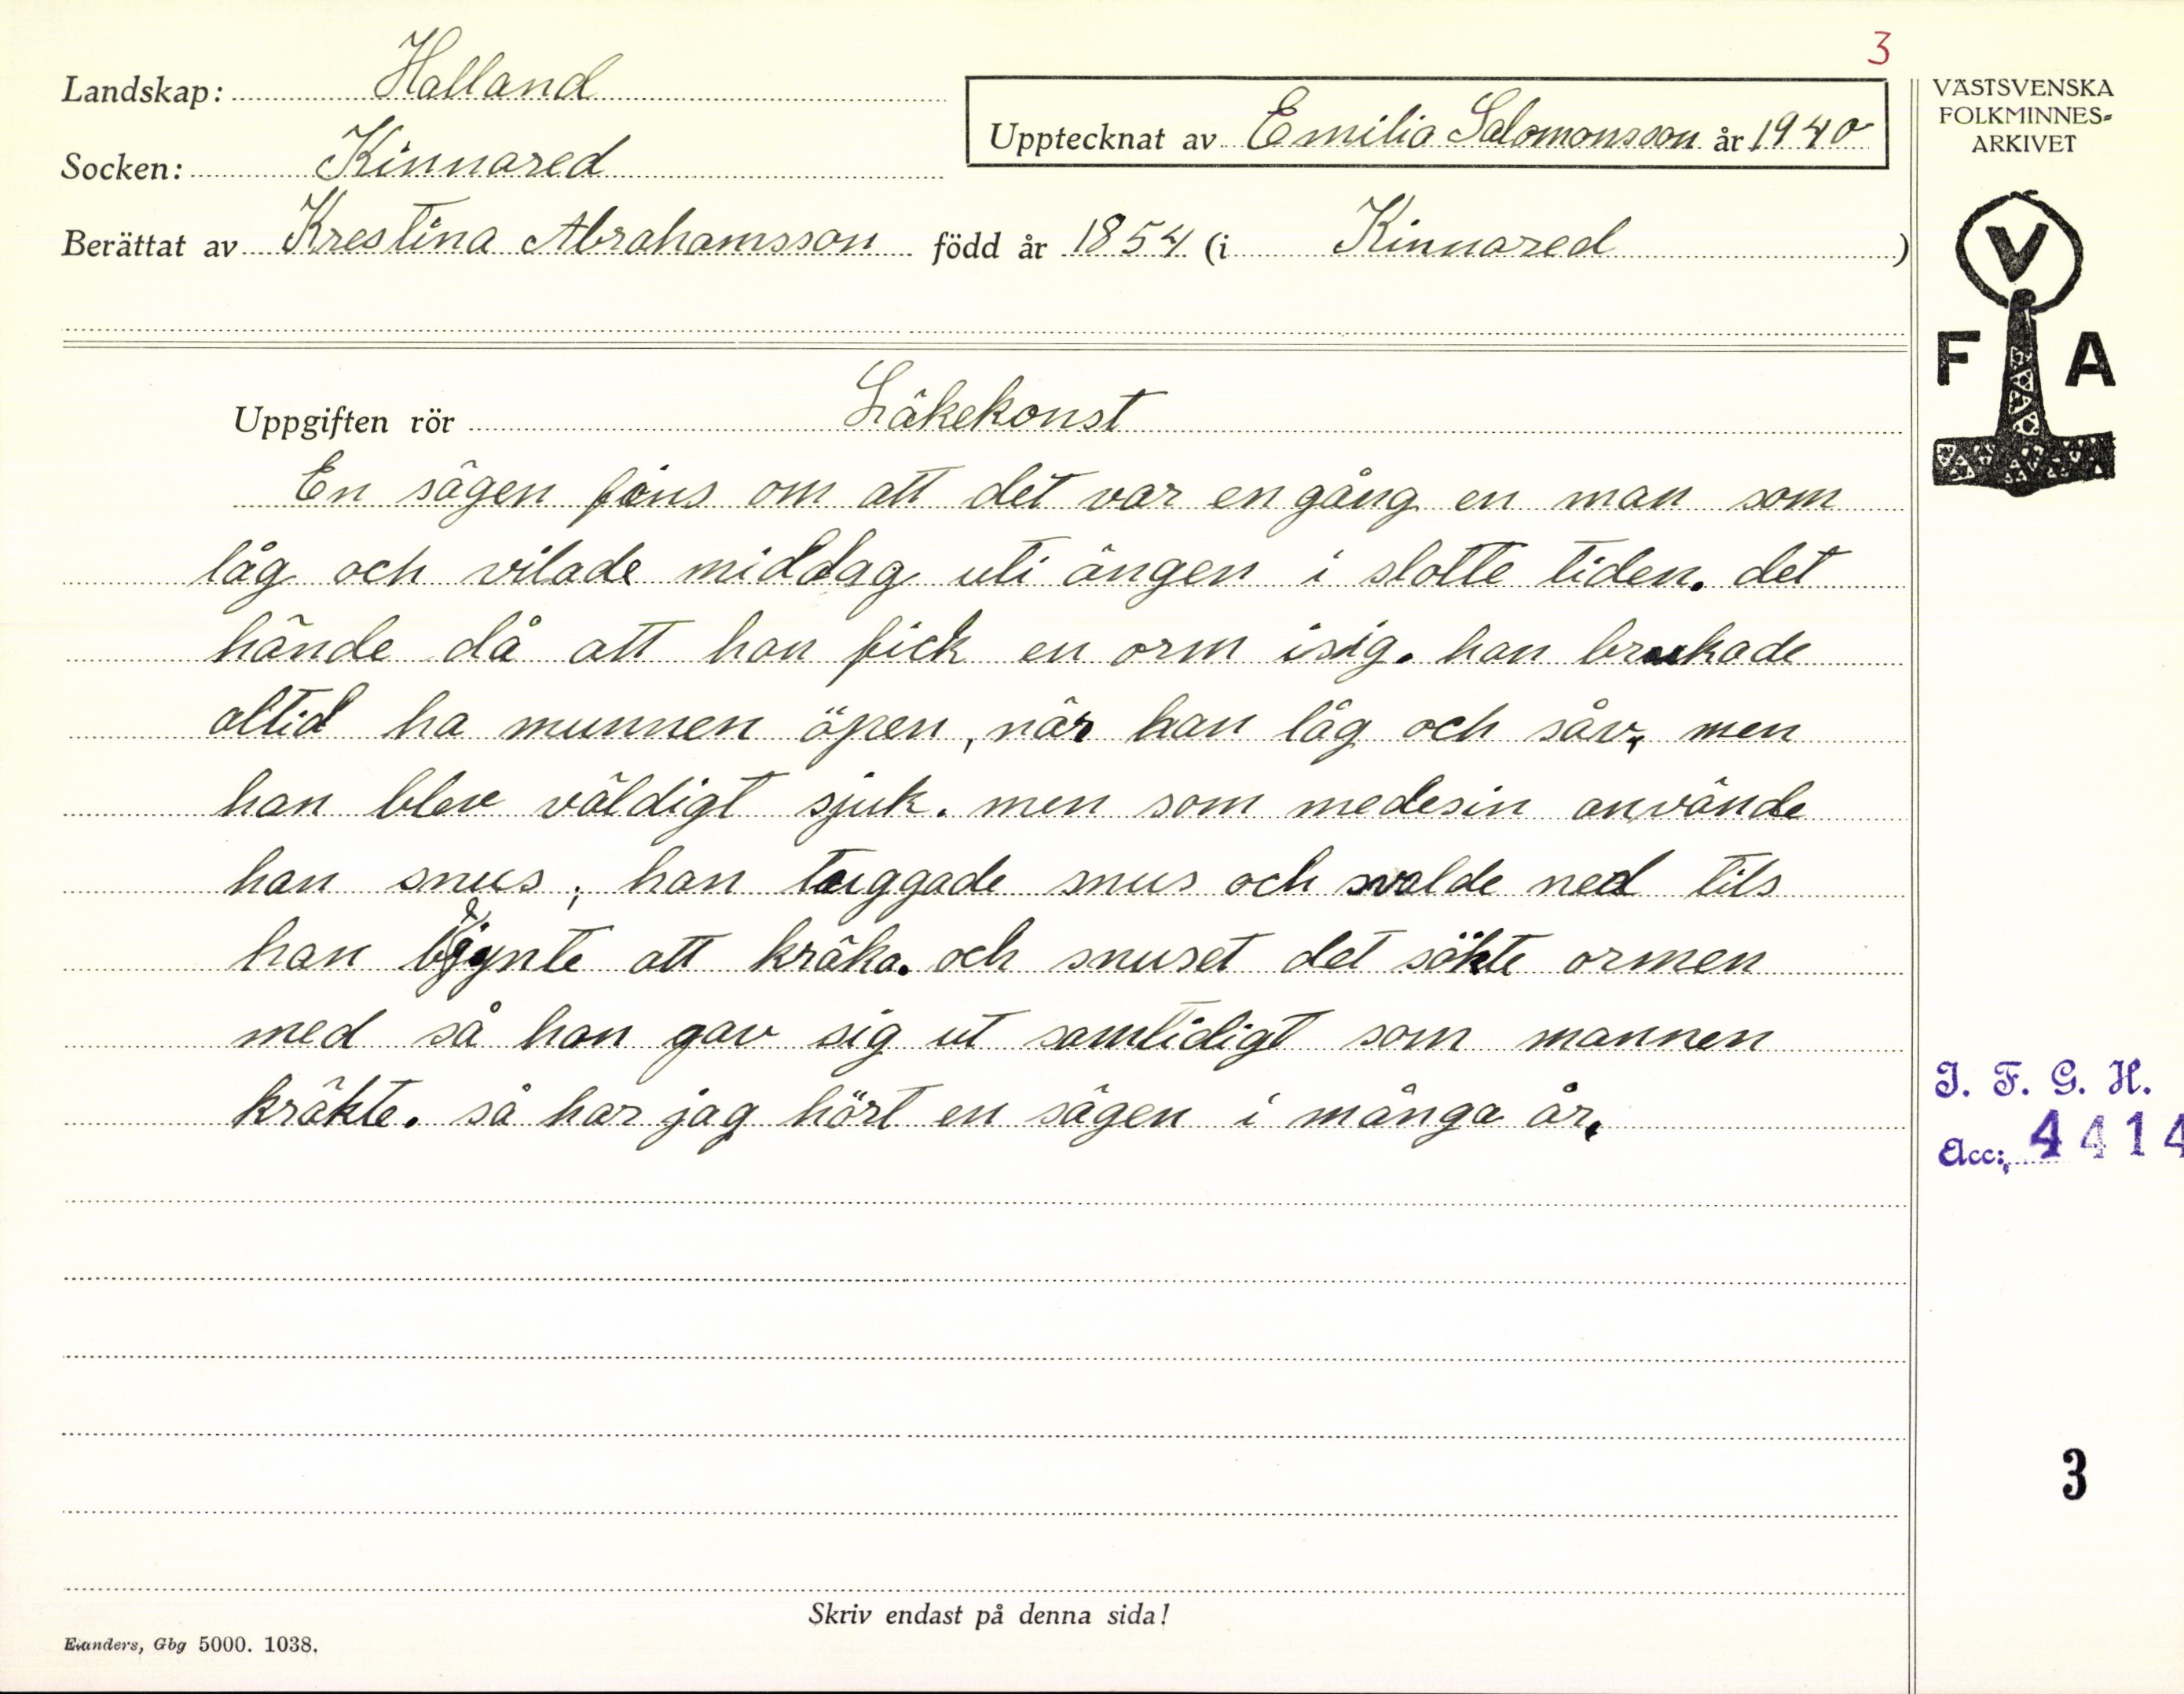 3
Landskap: Halland
Upptecknat av Emilia Salomonsson år 1940
Socken: Kinnared
Berättat av Krestina Abrahamsson född år 1854 (i Kinnared )
VÄSTSVENSKA
FOLKMINNES=
ARKIVET
V
F A
Uppgiften rör Läkekonst
En sägen fins om att det var en gång en man som
låg och vilade middag uti ängen i slotte tiden. det
hände då att han fick en orm isig. han brukade
altid ha munnen öpen, när han låg och såv, men
han blev väldigt sjuk. men som medesin använde
han snus, han tuggade snus och svalde ned tils
han begynte att kräka. och snuset det sökte ormen
med så han gav sig ut samtidigt som mannen
kräkte. så har jag hört en sägen i många år.
I. F. G. H.
Acc: 4414
3
Skriv endast på denna sida!
Evanders, Gbg 5000. 1038.